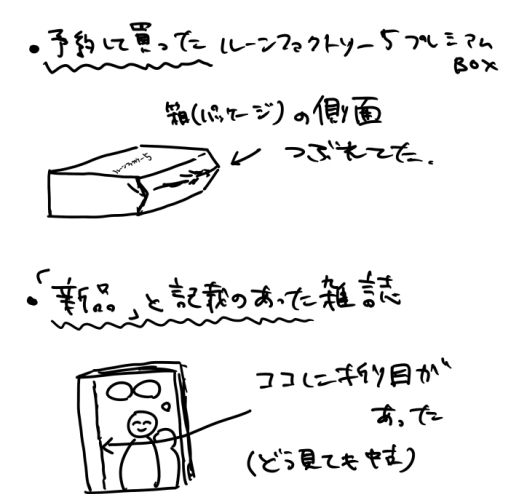 ・予約して買ったルーンファクトリー5プレミアム
BOX
箱(パッケージ)の側面
つぶれてた。
ルーンファクトリー5
・「新品」と記載のあった雑誌
ココに折り目が
あった
(どう見ても中古)